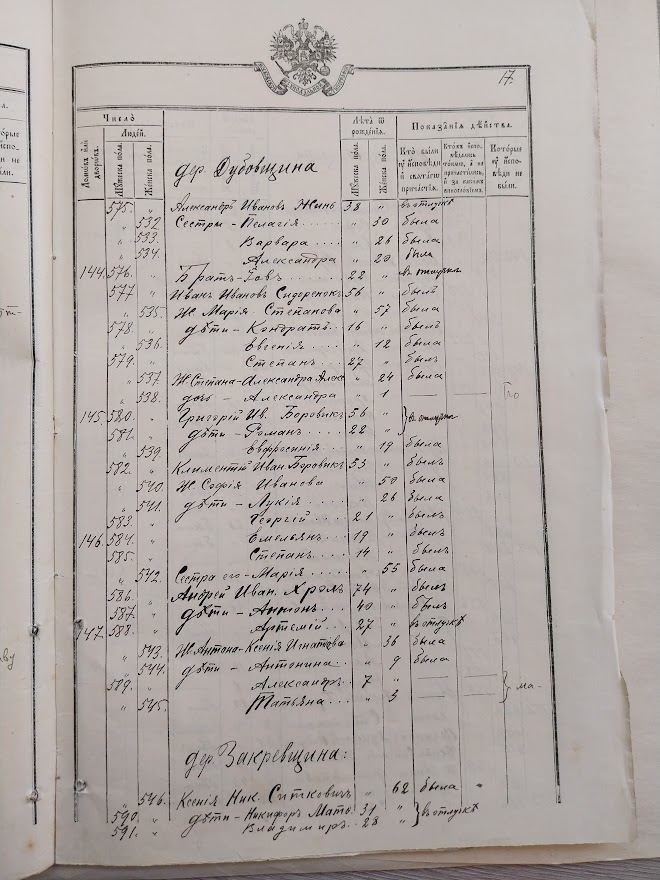 17.
Число
Людей.
Домовъ или дворовъ.
Мужеска пола.
Женска пола.
Лѣта ѿ рожденія.
Мужеска пола.
Женска пола.
Показанія дѣйства.
Кто были у исповѣди и святаго причастія.
Кто же исповѣдались токмо, а не причастились, и за какимъ винословіемъ.
Которые у исповѣди не были.
дер. Дубовщина
575. " Александръ Ивановъ 38 " въ отлучкѣ
" 532 Сестры - Пелагія " 30 была
" 533. Варвара " 26 была
" 534. Александра " 20 была
144. 576. " Братъ 22 " въ отлучкѣ
577 " Иванъ Ивановъ Сидоренокъ 56 " былъ
" 535. Ж. Марія Степанова " 57 была
578. " дѣти - Кондратъ 16 " былъ
" 536. Евгенія " 12 была
579. " Степанъ 27 " былъ
" 537. Ж. Степана - Александра Алекс " 24 была
" 538. дочь - Александра " 1
145. 580. " Григорій Ив. Боровикъ 56 " въ отлучкѣ
581. " дѣти - Романъ 22 "
" 539. Евфросинія " 19 была
582. " Климентій Иван Боровикъ 53 " былъ
" 540. Ж. Софія Иванова " 50 была
" 541. дѣти - Лукія " 26 была
583. " Георгій 21 " былъ
146. 584. " Емельянъ 19 " былъ
585. " Степанъ 14 " былъ
" 542. Сестра его - Марія " 55 была
586. " Андрей Иван. Хролъ 74 " былъ
587. " дѣти - Антонъ 40 " былъ
147. 588. " Артемій 27 " въ отлучкѣ
" 543. Ж. Антона - Ксенія Игнатова " 36 была
" 544. дѣти - Антонина " 9 была
589. " Александръ 7 "
" 545. Татьяна " 3 ма.
дер. Закревщина:
" 546. Ксенія Ник. Ситковичъ " 62 была "
590. " дѣти - Никифоръ Матѳ. 31 " въ отлучкѣ
591. " Владимиръ 28 "